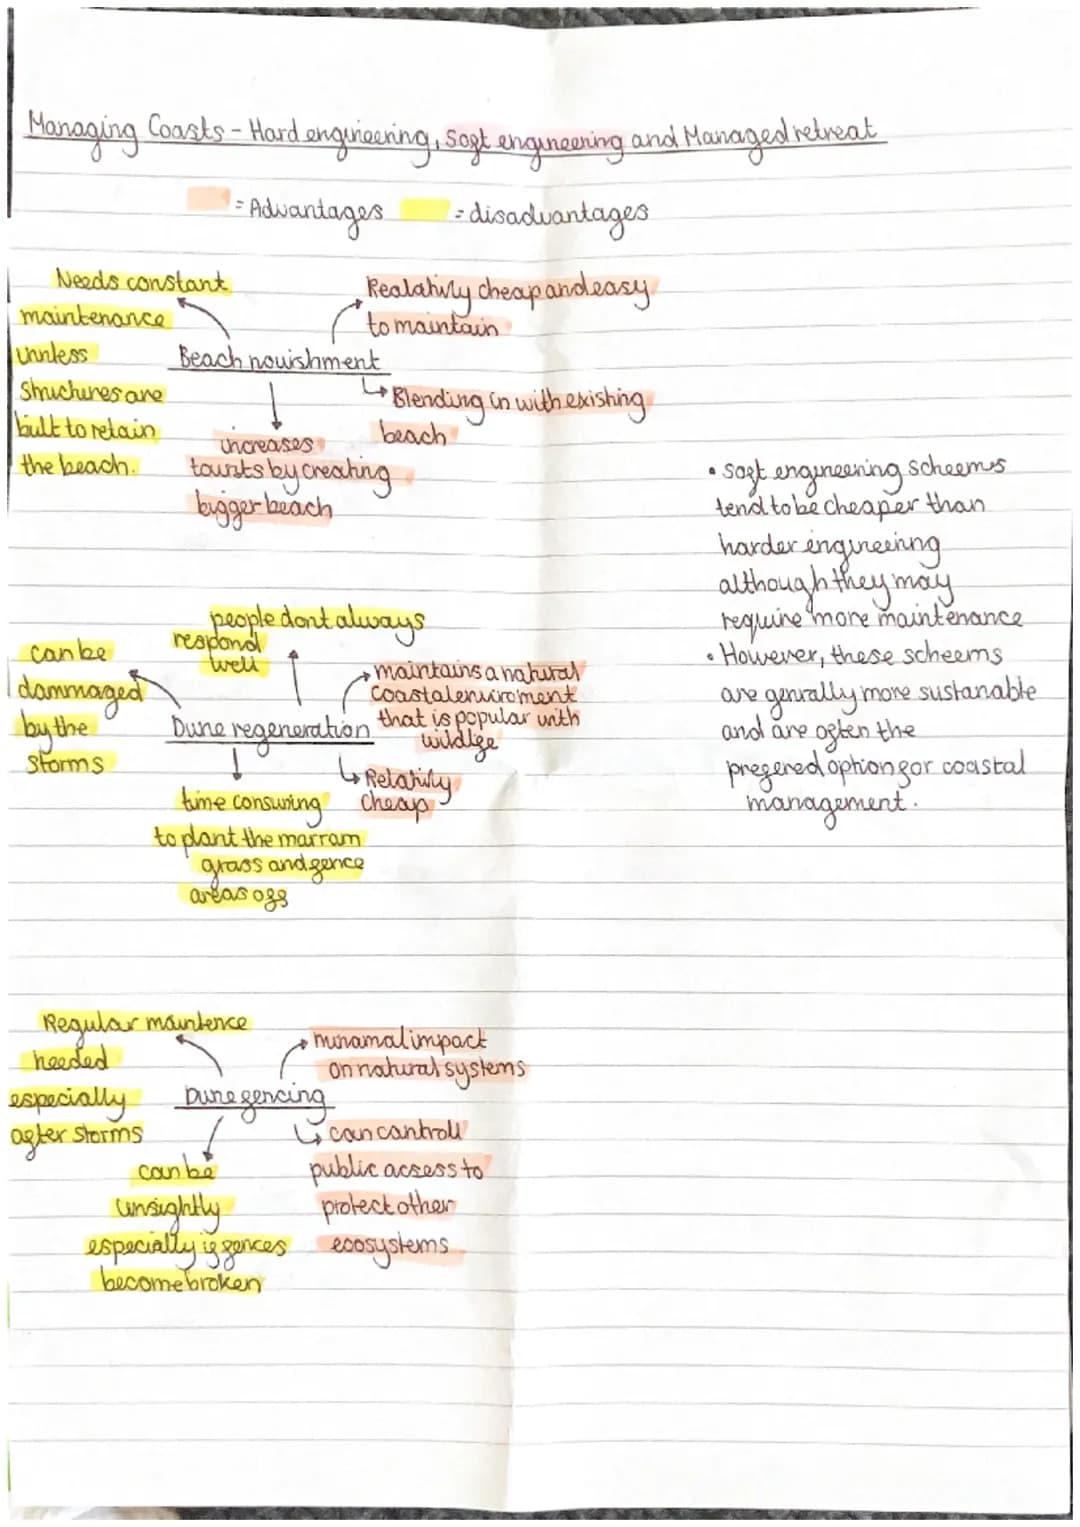 Managing Coasts - Hard engineering, soft engineering and Managed retreat
= Advantages = disadvantages
Needs constant
maintenance
unnless
structures are
bult to retain
the beach.
Realativly cheap and easy
to maintain
Beach nourishment
Blending in with existing
beach
increases
tourists by creating
bigger beach
people dont always
respond
well
can be
dammaged
by the
storms
maintains a natural
coastal enviroment
that is popular with
wildlife
Dune regeneration
Relativly
cheap
time consuming
to plant the marram
grass and fence
areas off
Regular maintence
needed
especially
after storms
minamal impact
on natural systems
Dune fencing
can controll
public acsess to
protect other
ecosystems
can be
unsightly
especially if fences
become broken
• soft engineering scheemes
tend to be cheaper than
harder engineering
although they may
require more maintenance
• However, these scheems
are genrally more sustanable
and are often the
prefered option for coastal
management.